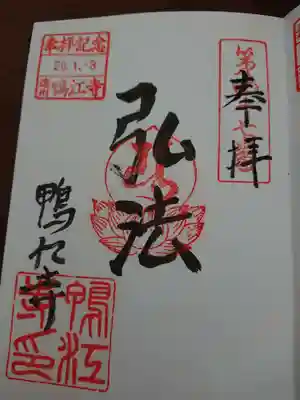 奉拝
弘法
鴨江寺
奉拝記念
20.1.-3
鴨江寺
鴨江
寺印